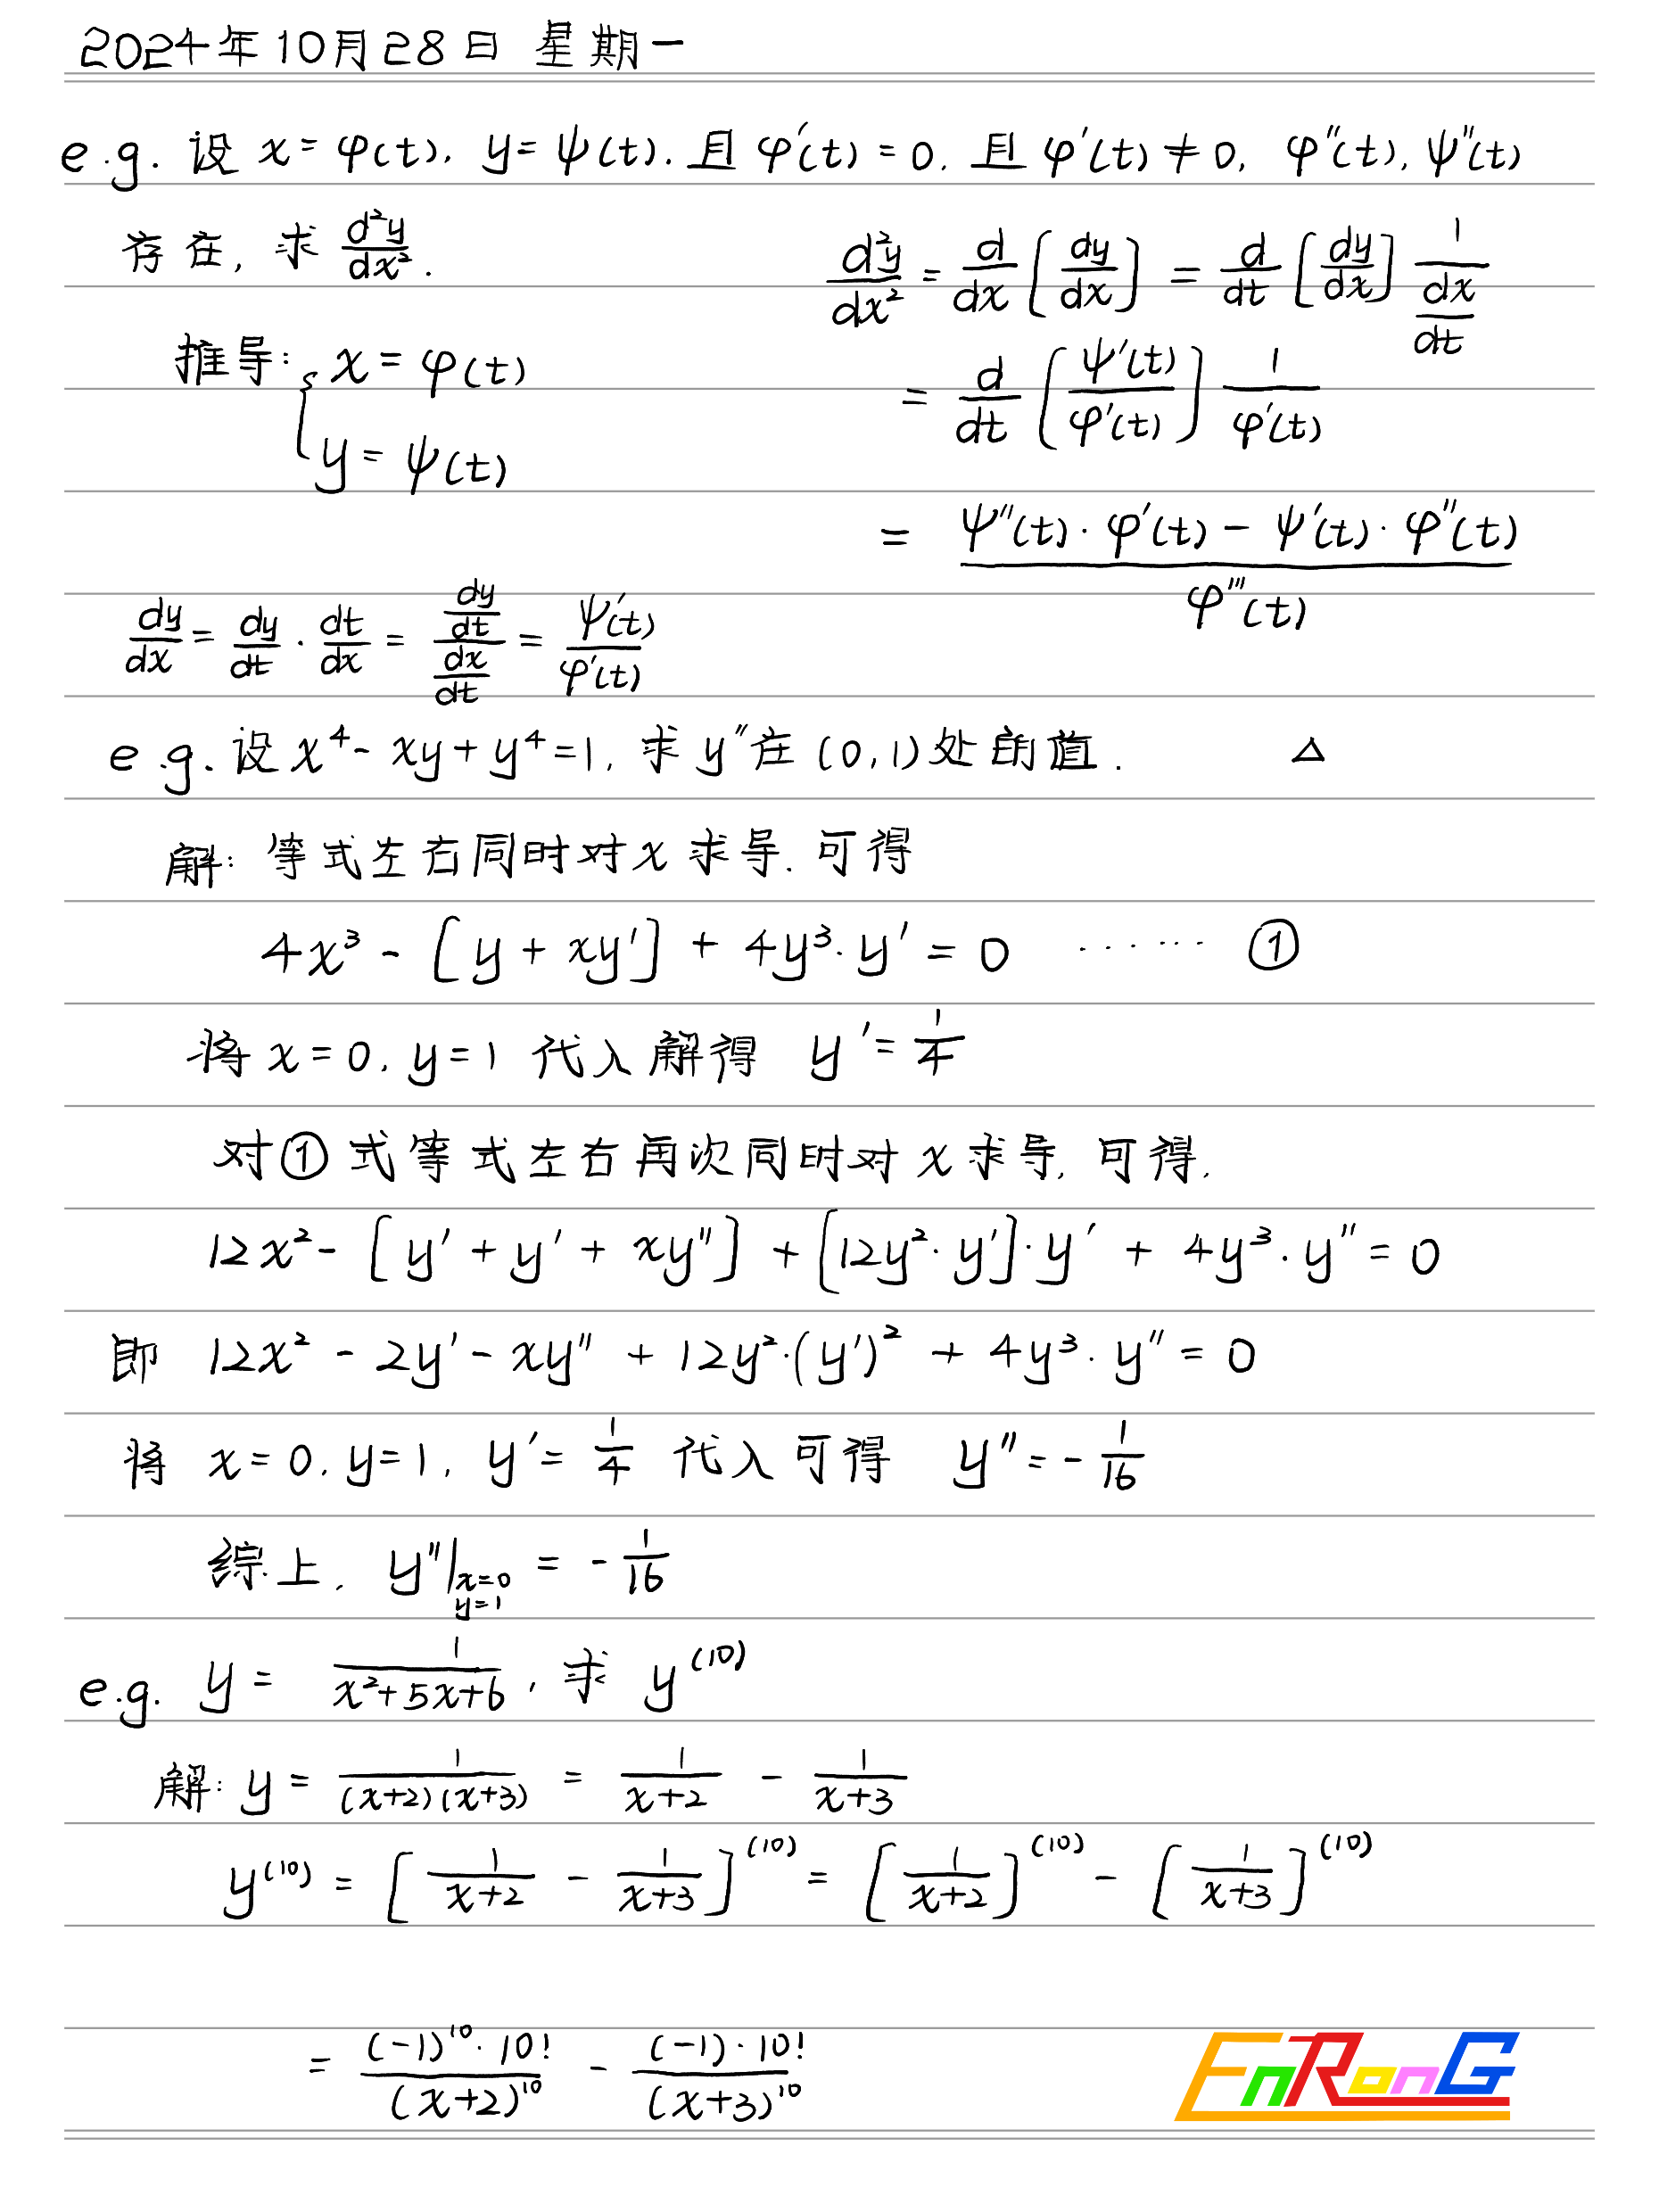 2024年10月28日 星期一
e.g. 设 x = φ(t), y = ψ(t). 且 φ'(t) = 0, 且 φ'(t) ≠ 0, φ''(t), ψ''(t)
存在, 求 d²y/dx².
d²y/dx² = d/dx [dy/dx] = d/dt [dy/dx] 1/(dx/dt)
推导: { x = φ(t)
y = ψ(t)
= d/dt [ψ'(t)/φ'(t)] 1/φ'(t)
= (ψ''(t)·φ'(t) - ψ'(t)·φ''(t))/φ'''(t)
dy/dx = dy/dt · dt/dx = (dy/dt)/(dx/dt) = ψ'(t)/φ'(t)
e.g. 设 x⁴ - xy + y⁴ = 1, 求 y'' 在 (0,1) 处的值. △
解: 等式左右同时对 x 求导. 可得
4x³ - [y + xy'] + 4y³·y' = 0 ······ ①
将 x = 0, y = 1 代入解得 y' = 1/4
对①式等式左右再次同时对 x 求导, 可得,
12x² - [y' + y' + xy''] + [12y²·y']·y' + 4y³·y'' = 0
即 12x² - 2y' - xy'' + 12y²·(y')² + 4y³·y'' = 0
将 x = 0, y = 1, y' = 1/4 代入可得 y'' = -1/16
综上, y''|x=0 y=1 = -1/16
e.g. y = 1/(x²+5x+6), 求 y⁽¹⁰⁾
解: y = 1/((x+2)(x+3)) = 1/(x+2) - 1/(x+3)
y⁽¹⁰⁾ = [1/(x+2) - 1/(x+3)]⁽¹⁰⁾ = [1/(x+2)]⁽¹⁰⁾ - [1/(x+3)]⁽¹⁰⁾
= ((-1)¹⁰·10!)/(x+2)¹⁰ - ((-1)·10!)/(x+3)¹⁰
EnRonG